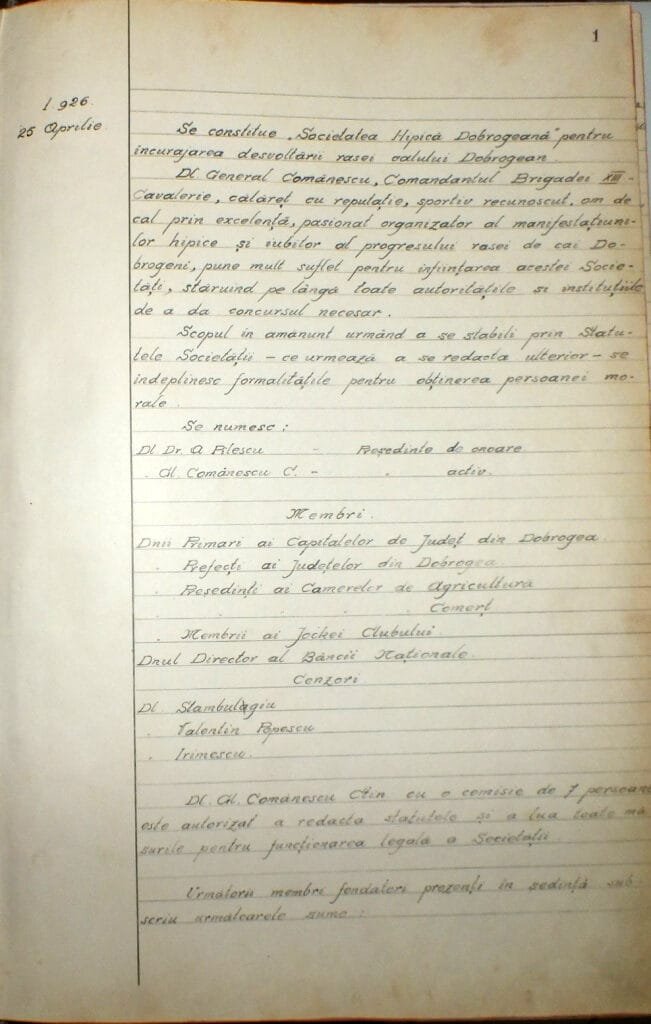 1
1.926.
25 Aprilie.
Se constitue „Societatea Hipică Dobrogeană" pentru
încurajarea desvoltării rasei calului Dobrogean.
Dl. General Comănescu, Comandantul Brigadei XIII-
Cavalerie, călăreț cu reputație, sportiv recunoscut, om de
cal prin excelență, pasionat organizator al manifestațiuni-
lor hipice și iubitor al progresului rasei de cai Do-
brogeni, pune mult suflet pentru înființarea acestei Socie-
tăți, stăruind pe lângă toate autoritățile si instituțiile
de a da concursul necesar.
Scopul in amănunt urmând a se stabili prin Statu-
tele Societății – ce urmează a se redacta ulterior – se
îndeplinesc formalitățile pentru obținerea persoanei mo-
rale.
Se numesc :
Dl Dr. A Pilescu - Președinte de onoare
. Gl. Comănescu C. - . activ.
Membri.
Dnii Primari ai Capitalelor de Județ din Dobrogea.
. Prefecți ai Județelor din Dobrogea.
. Președinți ai Camerelor de Agricultură
. . . . . Comerț
. Membrii ai Jockei Clubului.
Dnul Director al Băncii Naționale.
Cenzori.
Dl Stambulagiu
. Valentin Popescu
. Irimescu.
Dl. Gl. Comănescu Ctin cu o comisie de 7 persoane
este autorizat a redacta statutele și a lua toate mă
surile pentru funcționarea legală a Societății
Următorii membri fondatori prezenți în ședință sub-
scriu următoarele sume :